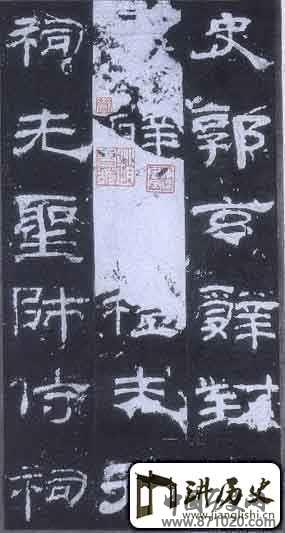 史郭玄辭對
辟禮未行
祠先聖師侍祠
讲历史
www.jianglishi.cn
www.871020.com